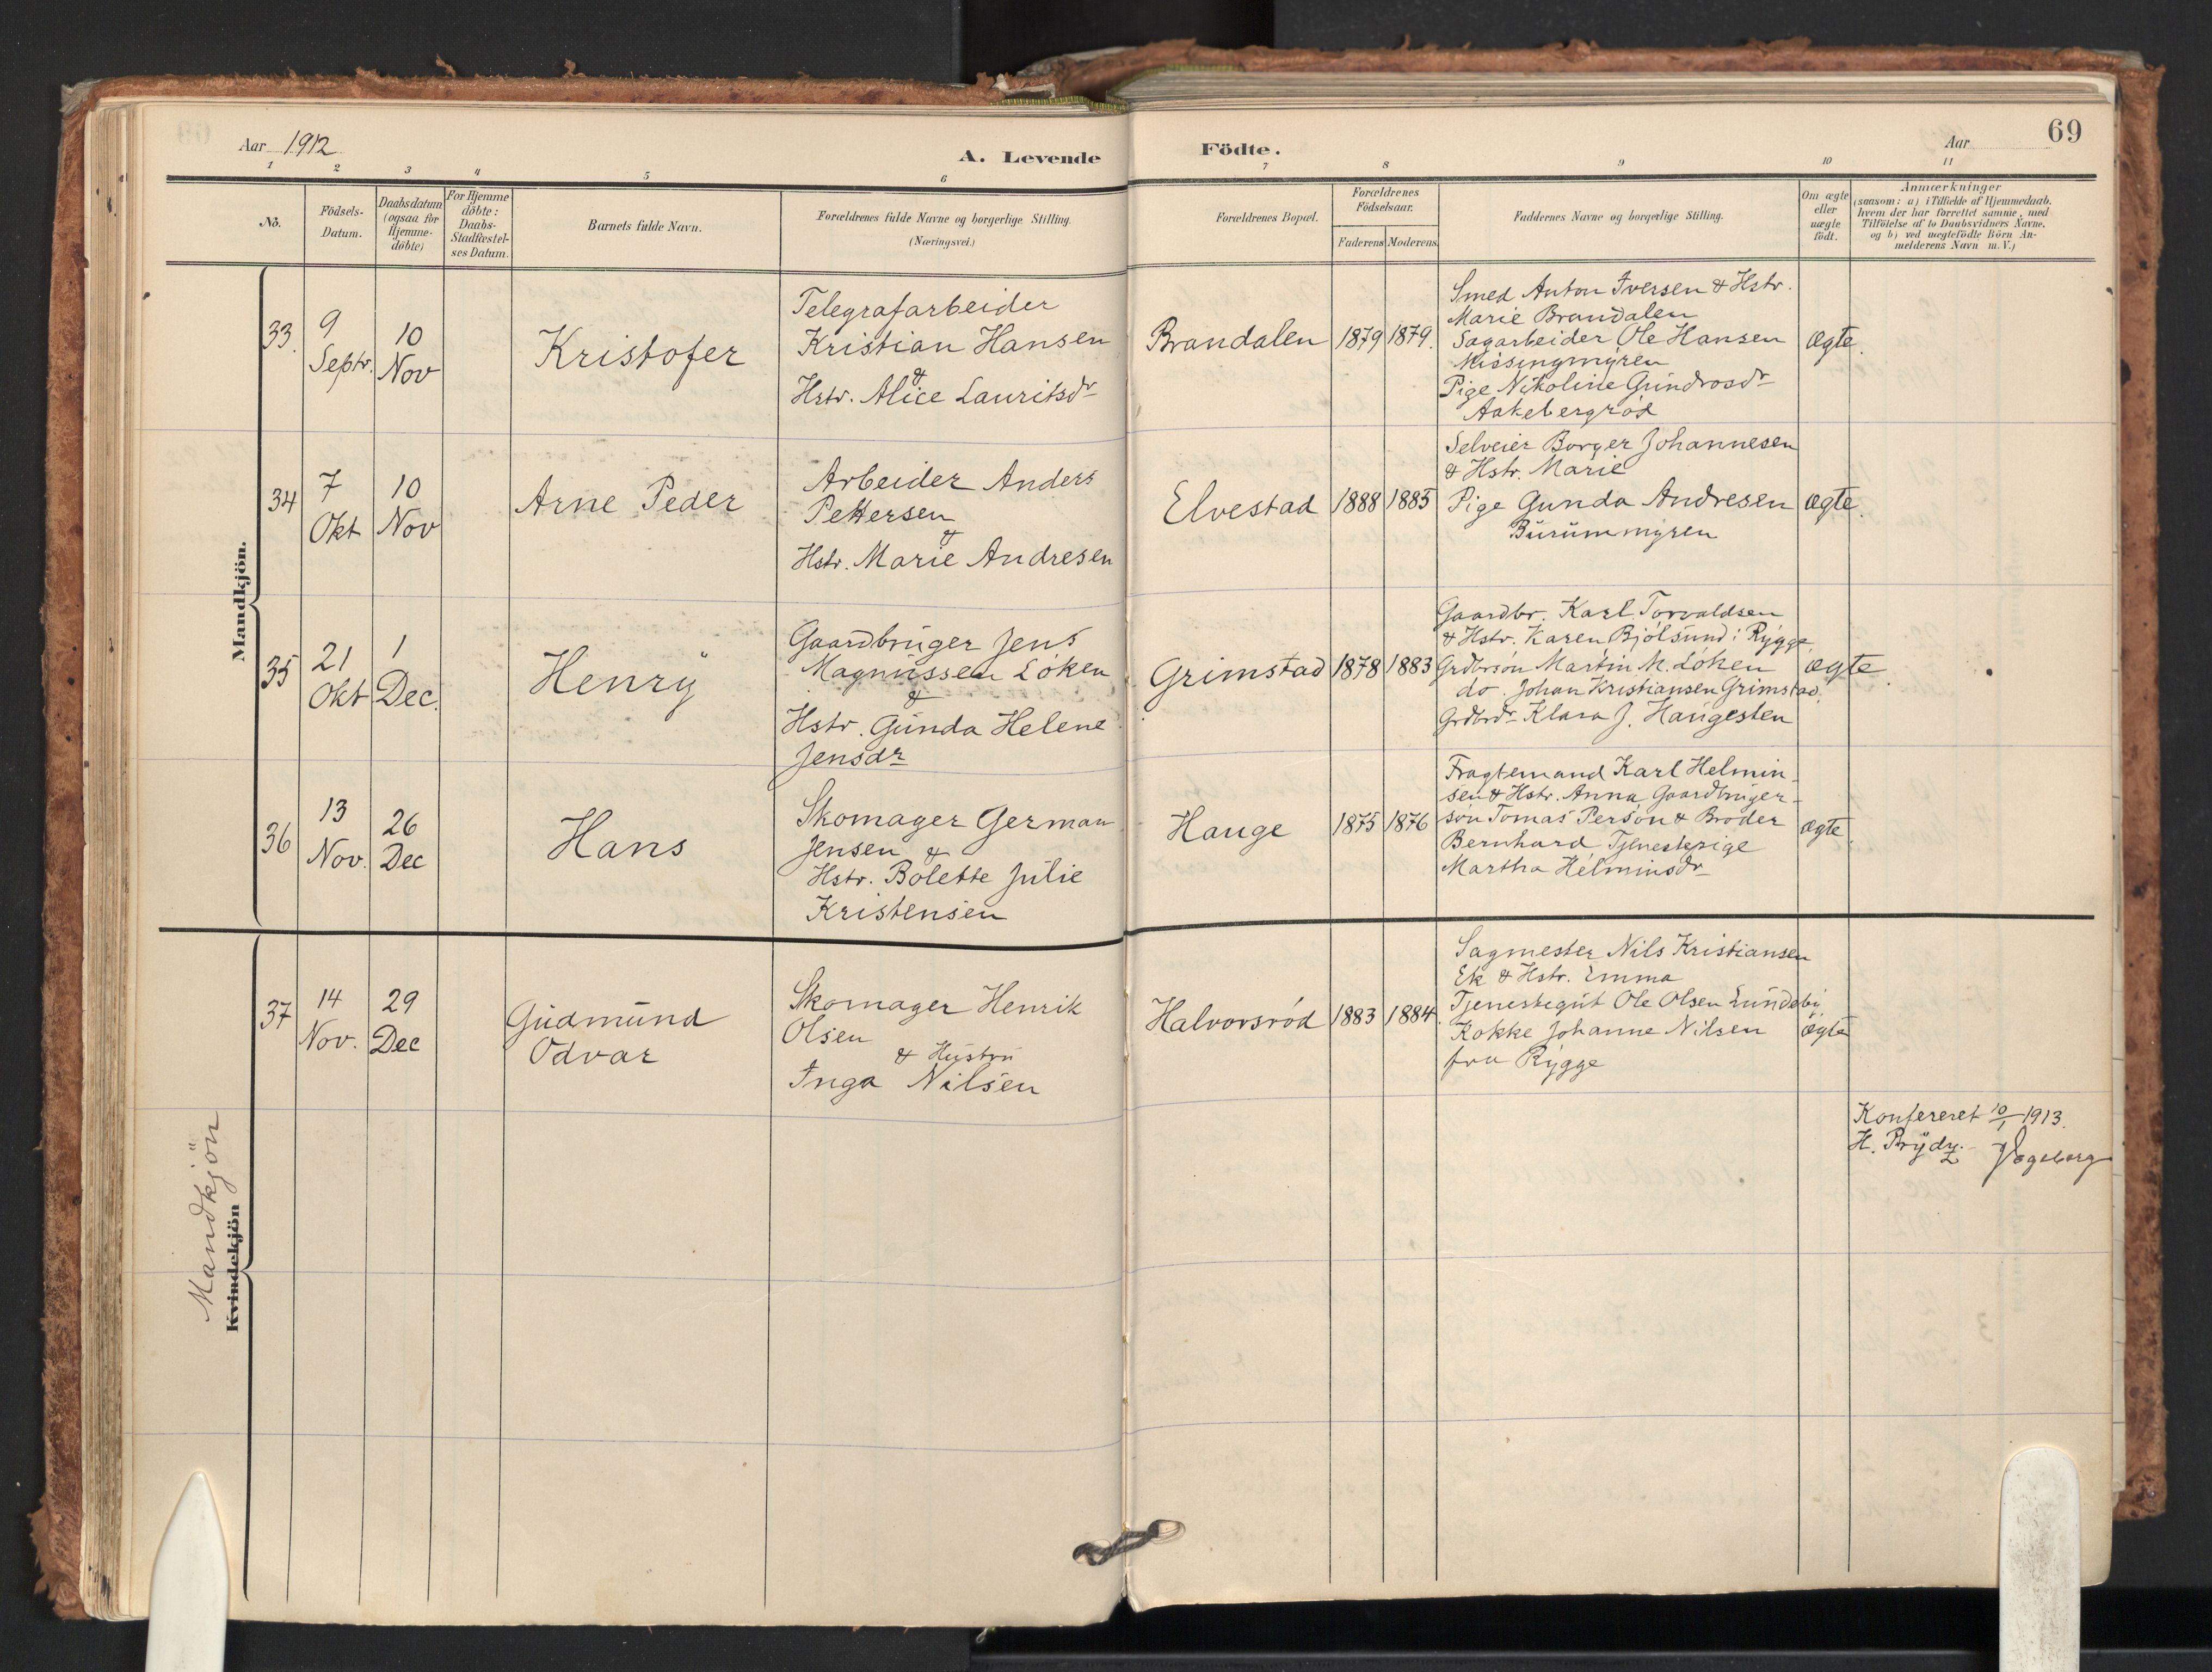 Aar 1912
A. Levende
Födte.
Aar
69
1 2 3 4 5 6 7 8 9 10 11
No.
Födsels-
Datum.
Daabsdatum
(ogsaa for
Hjemme-
döbte)
For Hjemme
döbte:
Daabs-
Stadfæstel-
ses Datum.
Barnets fulde Navn.
Forældrenes fulde Navne og borgerlige Stilling.
(Næringsvei.)
Forældrenes Bopæl.
Forældrenes
Födselsaar.
Faderens Moderens
Faddernes Navne og borgerlige Stilling.
Om ægte
eller
uægte
födt.
Anmærkninger
(saasom: a) i Tilfælde af Hjemmedaab,
hvem der har forrettet samme, med
Tilföielse af to Daabsvidners Navne,
og b) ved uægtefödte Börn An-
melderens Navn m. V.)
Mandkjön.
33.
9
Septr.
10
Nov
Kristofer
Telegrafarbeider
Kristian Hansen
&
Hstr. Alice Lauritsdr
Brandalen
1879
1879.
Smed Anton Iversen & Hstr.
Marie Brandalen
Sagarbeider Ole Hansen
Missingmyren
Pige Nikoline Gundrosdr
Aakebergröd
ægte.
34
7
Okt
10
Nov
Arne Peder
Arbeider Anders
Pettersen
&
Hstr. Marie Andresen
Elvestad
1888
1885
Selveier Borger Johannesen
& Hstr. Marie
Pige Gunda Andresen
Burummyren
ægte.
35
21
Okt
1
Dec.
Henry
Gaardbruger Jens
Magnussen Löken
&
Hstr. Gunda Helene
Jensdr
Grimstad
1878
1883
Gaardbr. Karl Torvaldsen
& Hstr. Karen Bjölsund i Rygge.
Grdbrsön Martin M. Löken
do. Johan Kristiansen Grimstad.
Grdbrdr Klara J. Haugesten
ægte.
36
13
Nov.
26
Dec
Hans
Skomager German
Jensen &
Hstr. Bolette Julie
Kristensen
Hauge
1875
1876
Fragtemand Karl Helmin-
sen & Hstr. Anna Gaardbruger-
sön Tomas Persön & Broder
Bernhard Tjenestepige
Martha Helminsdr
ægte.
Mandkjön
Kvindekjön
37
14
Nov.
29
Dec
Gudmund
Odvar
Skomager Henrik
Olsen
& Hustru
Inga Nilsen
Halvorsröd
1883
1884.
Sagmester Nils Kristiansen
Ek & Hstr. Emma
Tjenestegut Ole Olsen Lundeby
Kokke Johanne Nilsen
fra Rygge
ægte
Konfereret 10/1 1913.
H. Prydz.